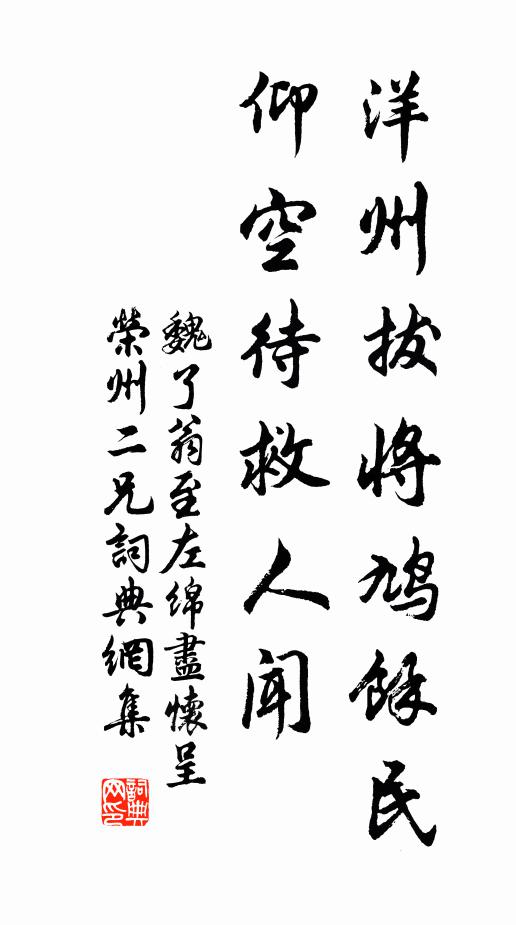 洋州拔將鳩餘民
仰空待救人聞
魏了翁至左綿盡懷呈
榮州二兄詞典網集
詞典網印